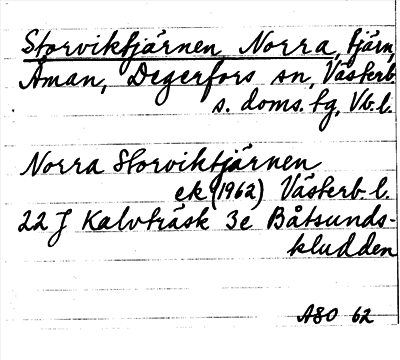 Storviktjärnen Norra, tjärn,
Åman, Degerfors sn, Västerb.
s. doms. tg, Vb. l.
Norra Storviktjärnen
ek (1962) Västerb. l.
22 J Kalvträsk 3e Båtsunds-
kludden
A80 62